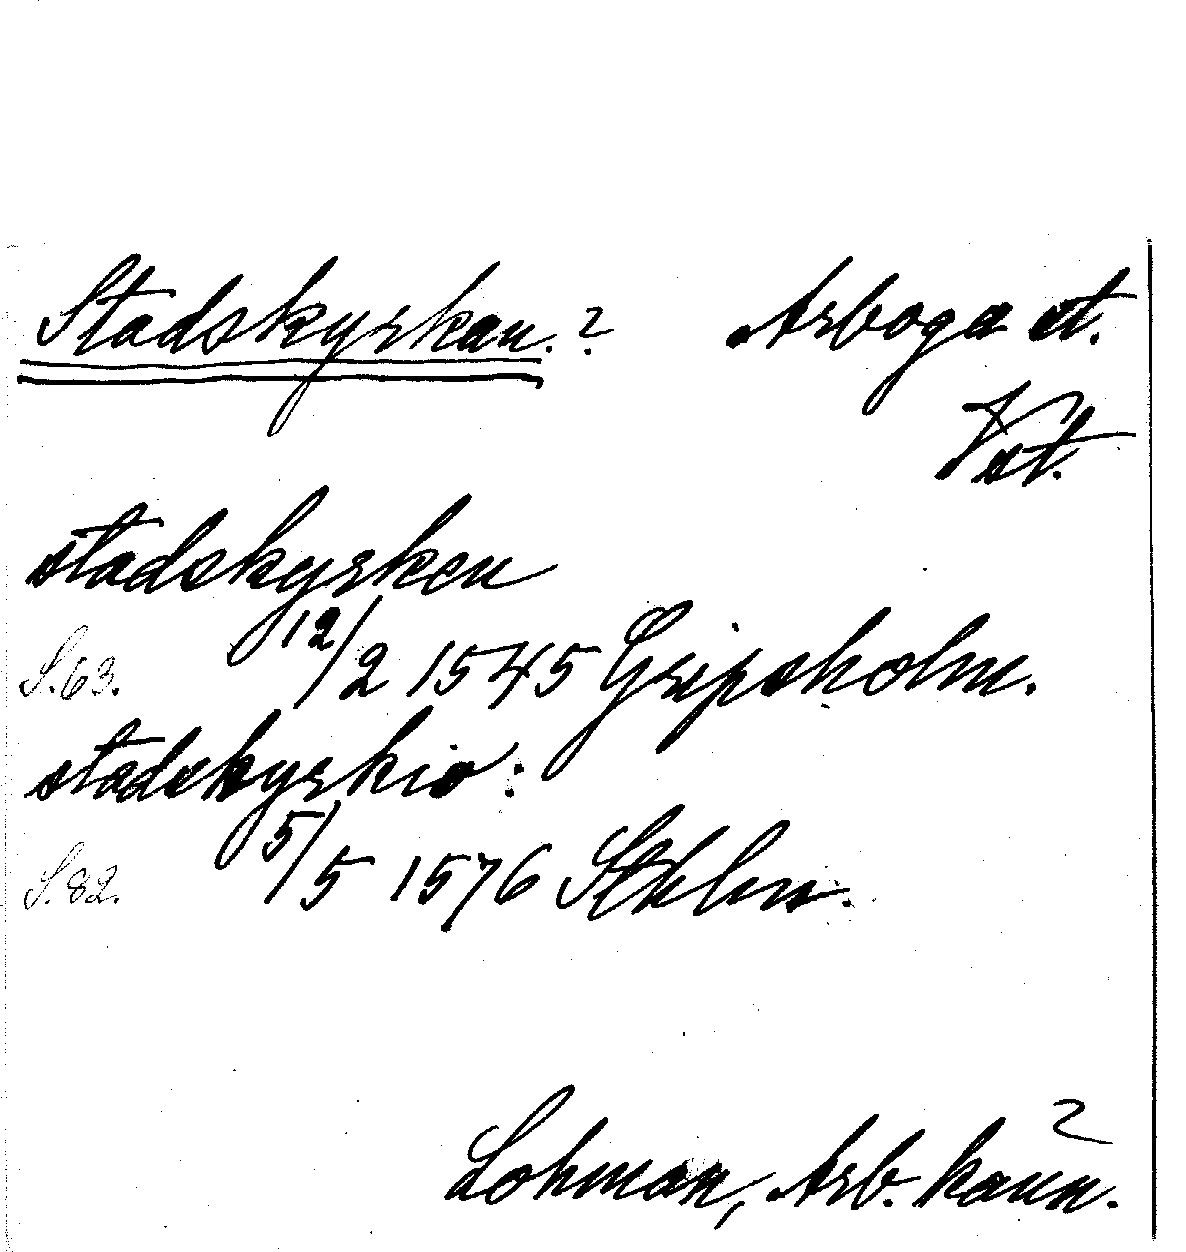 Stadskyrkan.? Arboga st.
Vst.
stadskyrken
S.63. 12/2 1545 Gripsholm.
stadskyrkio:
S.82. 5/5 1576 Sthlm.
2
Lohman, Arb. känn.